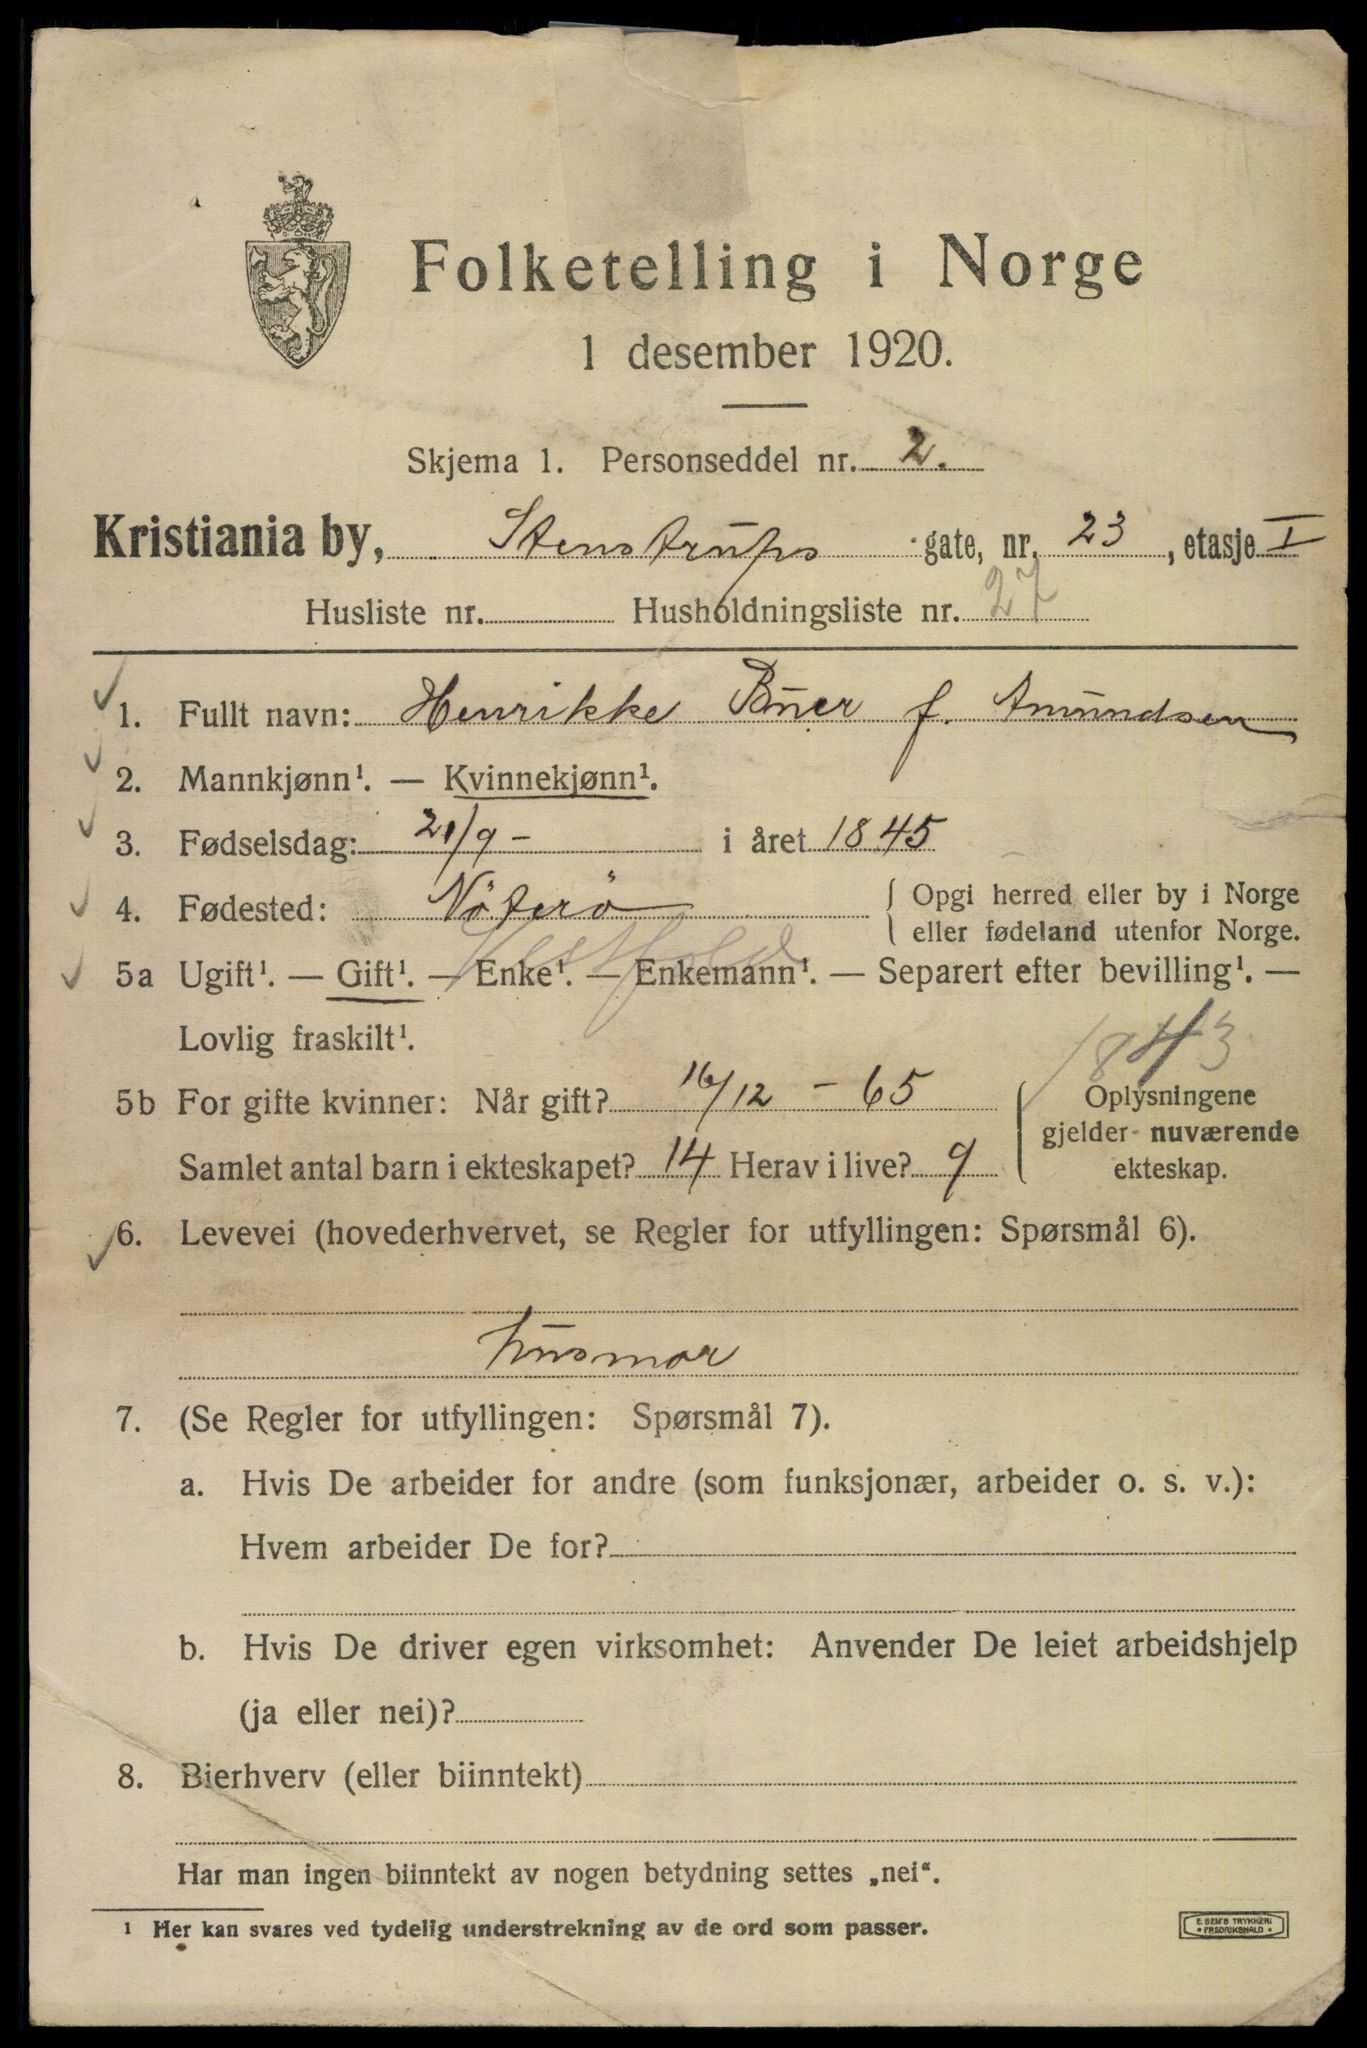 Folketelling i Norge
1 desember 1920.
Skjema 1. Personseddel nr. 2.
Kristiania by, Stenstrups gate, nr. 23, etasje I
Husliste nr. Husholdningsliste nr. 27
1. Fullt navn: Henrikke Buer f. Amundsen
2. Mannkjønn¹. — Kvinnekjønn¹.
3. Fødselsdag: 21/9 - i året 1845
4. Fødested: Nöterö { Opgi herred eller by i Norge
eller fødeland utenfor Norge.
Vestfold
5a Ugift¹. — Gift¹. — Enke¹. — Enkemann¹. — Separert efter bevilling¹. —
Lovlig fraskilt¹.
1843
5b For gifte kvinner: Når gift? 16/12 - 65
Samlet antal barn i ekteskapet? 14 Herav i live? 9
Oplysningene
gjelder nuværende
ekteskap.
6. Levevei (hovederhvervet, se Regler for utfyllingen: Spørsmål 6).
husmor
7. (Se Regler for utfyllingen: Spørsmål 7).
a. Hvis De arbeider for andre (som funksjonær, arbeider o. s. v.):
Hvem arbeider De for?
b. Hvis De driver egen virksomhet: Anvender De leiet arbeidshjelp
(ja eller nei)?
8. Bierhverv (eller biinntekt)
Har man ingen biinntekt av nogen betydning settes „nei“.
¹ Her kan svares ved tydelig understrekning av de ord som passer.
E. SEM'S TRYKKERI
• FREDRIKSHALD •